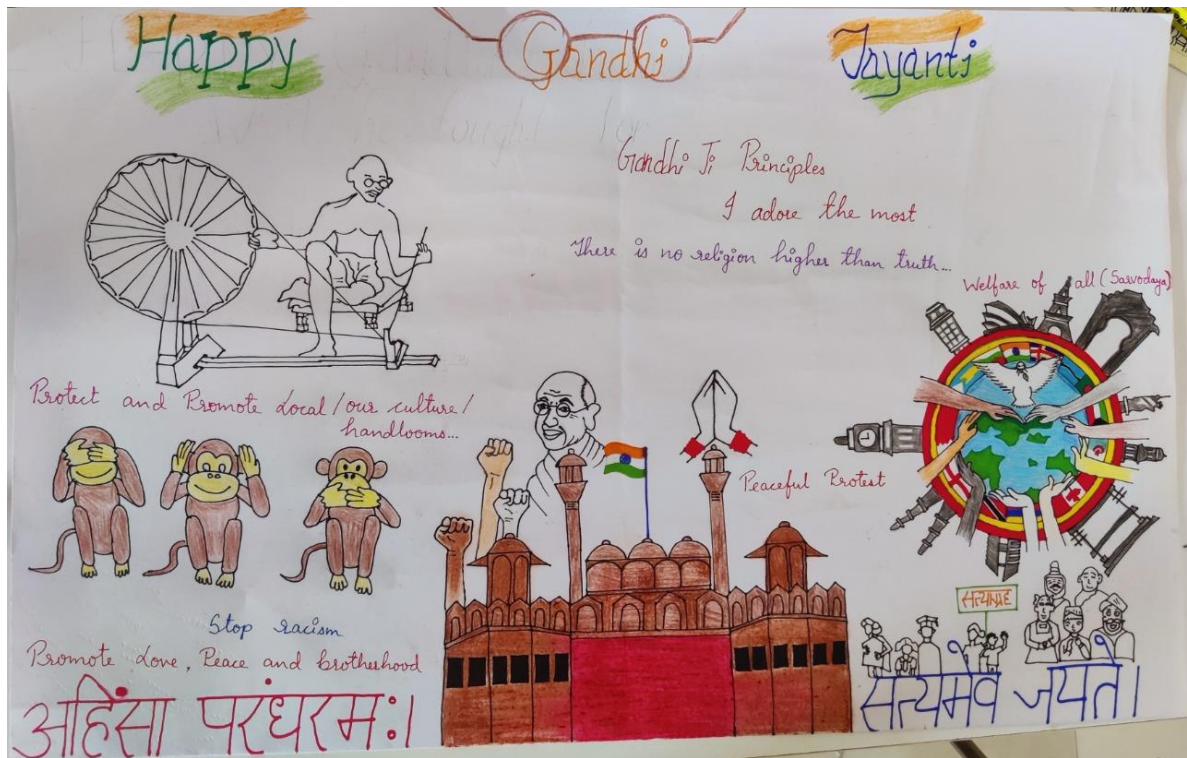 Happy Gandhi Jayanti
Gandhi Ji Principles
I adore the most
There is no religion higher than truth...
Welfare of all (Sarvodaya)
Protect and Promote Local/our culture/
handlooms...
Peaceful Protest
सत्याग्रह
Stop racism
Promote Love, Peace and brotherhood
अहिंसा परंघरमः।
सत्यमेव जयते।